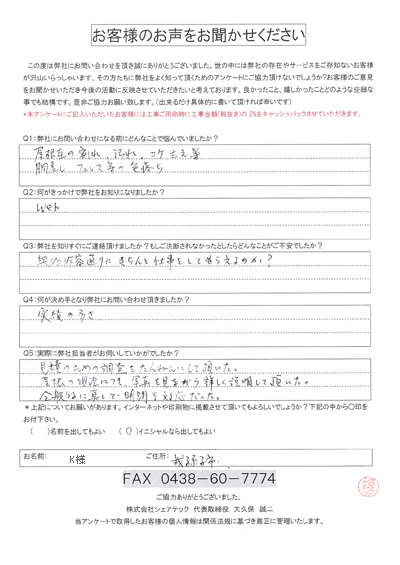 お客様のお声をお聞かせください
この度は弊社にお問い合わせを頂き誠にありがとうございました。世の中には弊社の存在やサービスをご存知ないお客様
が沢山いらっしゃいます。その方たちに弊社をよく知って頂くためのアンケートにご協力頂けないでしょうか?お客様のご意見
をお聞かせいただき今後の活動に反映させていただきたいと考えております。良かったこと、嬉しかったことどのような些細な
事でも結構です。是非ご協力お願い致します。(出来るだけ具体的に書いて頂ければ幸いです)
*本アンケートにご記入いただいたお客様には工事ご用命時に工事金額(税抜き)の2%をキャッシュバックさせていただきます。
Q1:弊社にお問い合わせになる前にどんなことで悩んでいましたか?
屋根瓦の割れ、汚れ、コケ生え等
胴差し、フェンス等の色落ち
Q2:何がきっかけで弊社をお知りになりましたか?
Web
Q3:弊社を知りすぐにご連絡頂けましたか?もしご決断されなかったとしたらどんなことがご不安でしたか?
契約内容通りにきちんと仕事をしてもらえるのか?
Q4:何が決め手となり弊社にお問い合わせ頂きましたか?
実績の多さ
Q5:実際に弊社担当者がお伺いしていかがでしたか?
見積のための調査をたんねんにして頂いた。
屋根の現況につき、写真を見ながら詳しく説明して頂いた。
全般的に真して明朗な対応だった。
*上記についてお願いがあります。インターネットや印刷物に掲載させて頂いてもよろしいでしょうか?下記の中から〇印を
お付下さい。
( )名前を出してもよい (〇)イニシャルなら出してもよい
お名前: K様 ご住所: 我孫子市
FAX 0438-60-7774
ご協力ありがとうございました。
株式会社シェアテック 代表取締役 大久保 誠二
当アンケートで取得したお客様の個人情報は関係法規に基づき厳正に管理いたします。